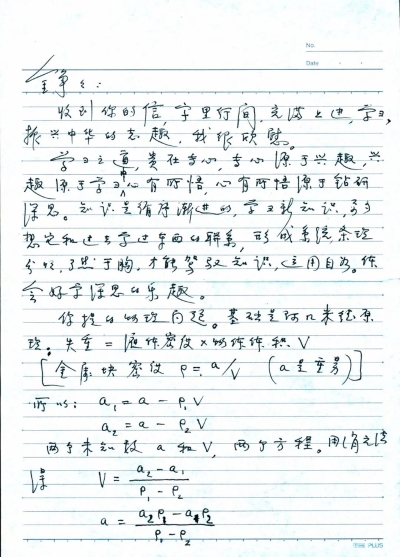 No.
Date
收到你的信，字里行间，充满上进，学习，
振兴中华的志趣，我很欣慰。
学习之道，贵在专心，专心源于兴趣，兴
趣源于学习中心有所悟，心有所悟源于钻研
深思。知识是循序渐进的，学习新知识，
想它和过去学过东西的联系，形成系统条理
分明，了然于胸，才能驾驭知识，运用自如。体
会好学深思的乐趣。
你提的物理问题。基础是阿几米德原
理。失重 = 液体密度 × 物体体积 V
[金属块密度 ρ = a/V （a是重量）]
所以： a₁ = a - ρ₁V
a₂ = a - ρ₂V
两个未知数 a 和 V，两个方程。用消元法
V = (a₂ - a₁)/(ρ₁ - ρ₂)
a = (a₂ρ₁ - a₁ρ₂)/(ρ₁ - ρ₂)
PLUS